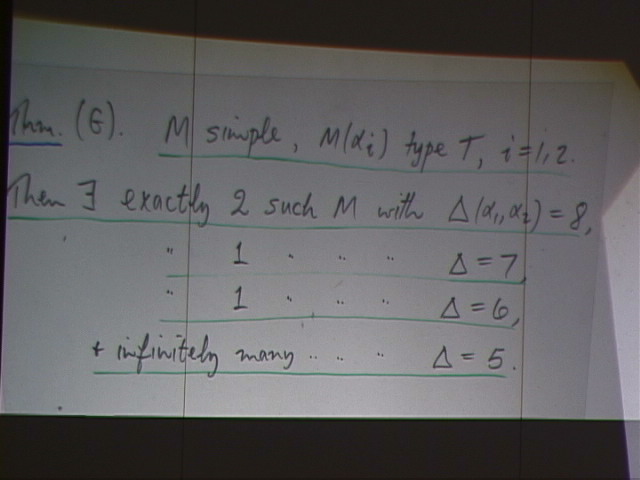 Thm. (G). M simple, M(αi) type T, i=1,2.
Then ∃ exactly 2 such M with Δ(α1,α2) = 8,
" 1 " " " Δ = 7,
" 1 " " " Δ = 6,
+ infinitely many " " " Δ = 5.